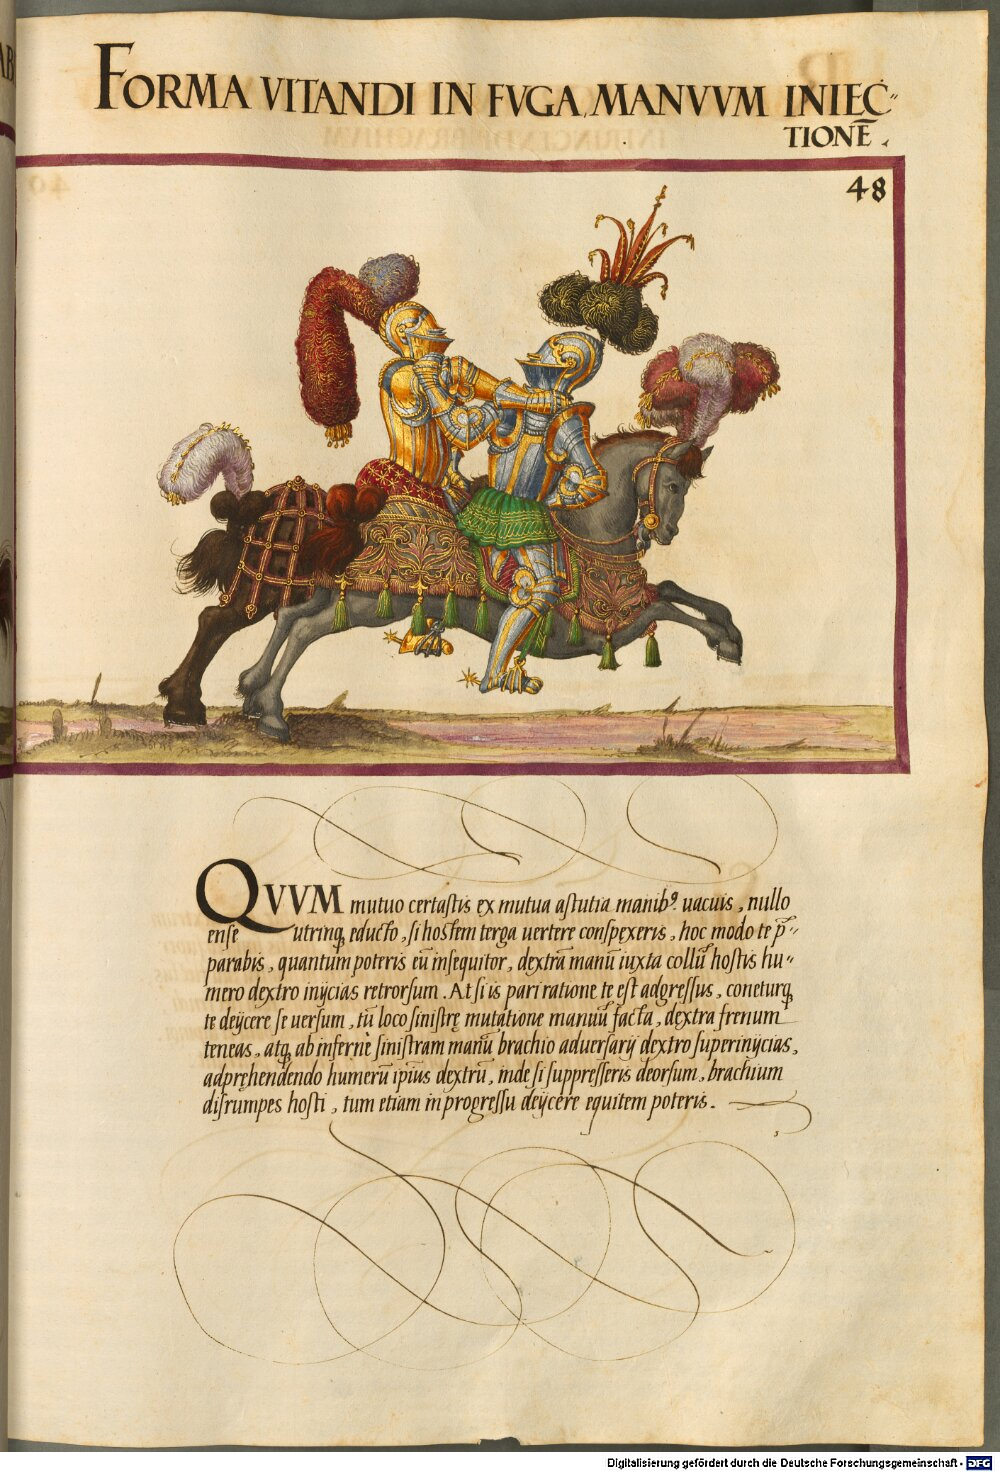 FORMA VITANDI IN FVGA, MANVVM INIEC„
TIONĒ.
48
QVVM mutuo certaſtis ex mutua aſtutia manibꝰ uacuis, nullo
enſe utrinqꝫ educto, ſi hoſtem terga uertere conſpexeris, hoc modo te p̄„
parabis, quantum poteris eū inſequitor, dextrā manū iuxta collū hoſtis hu„
mero dextro inijcias retrorſum. At ſi is pari ratione te eſt adgreſſus, coneturqꝫ
te deijcere ſeuerſum, tū loco ſiniſtrę mutatione manuū facta, dextra frenum
teneas, atqꝫ ab inferne ſiniſtram manū brachio aduerſarij dextro ſuperinijcias,
adpręhendendo humerū ipſius dextrū, inde ſi ſuppreſſeris deorſum, brachium
diſrumpes hoſti, tum etiam in progreſſu deijcere equitem poteris.
Digitalisierung gefördert durch die Deutsche Forschungsgemeinschaft - DFG